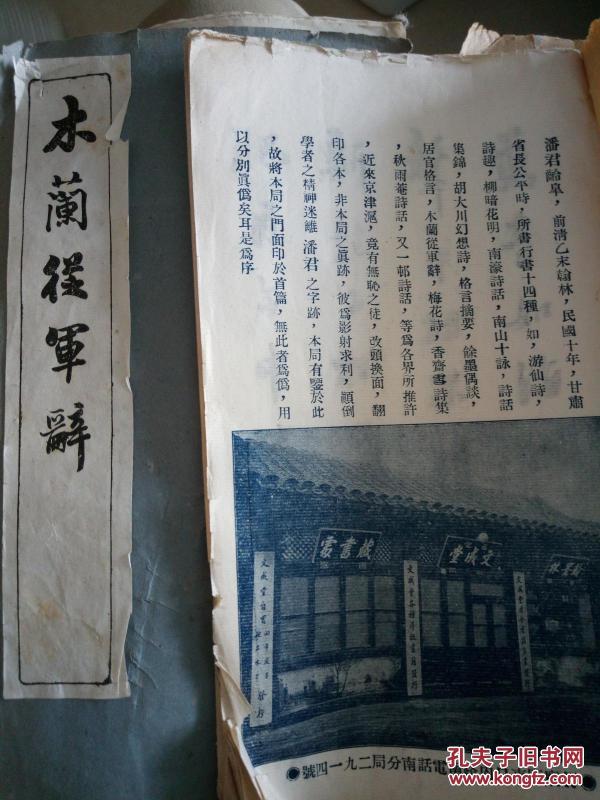 木蘭從軍辭
潘君齡皋，前清乙未翰林，民國十年，甘肅
省長公平時，所書行書十四種，如，游仙詩，
詩趣，柳暗花明，南濠詩話，南山十詠，詩話
集錦，胡大川幻想詩，格言摘要，餘墨偶談，
居官格言，木蘭從軍辭，梅花詩，香齋雪詩集
，秋雨菴詩話，又一邨詩話，等爲各界所推許
，近來京津滬，竟有無恥之徒，改頭換面，翻
印各本，非本局之眞跡，彼爲影射求利，顚倒
學者之精神迷離 潘君之字跡，本局有鑒於此
，故將本局之門面印於首篇，無此者爲僞，用
以分別眞僞矣耳是爲序
藏書處
文成堂
電話南分局二九一四號
孔夫子旧书网
KONGFZ.COM